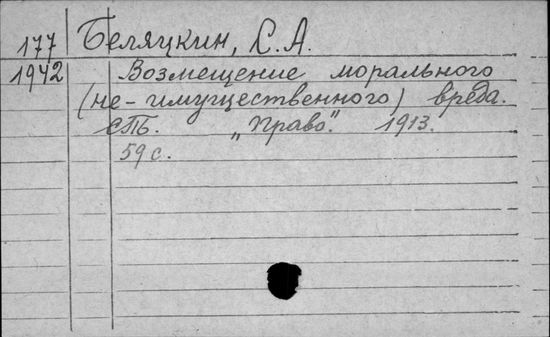 177 Беляцкин, С.А.
1942 Возмещение морального
(не-имущественного) вреда.
СПБ. „Право". 1913.
59 с.